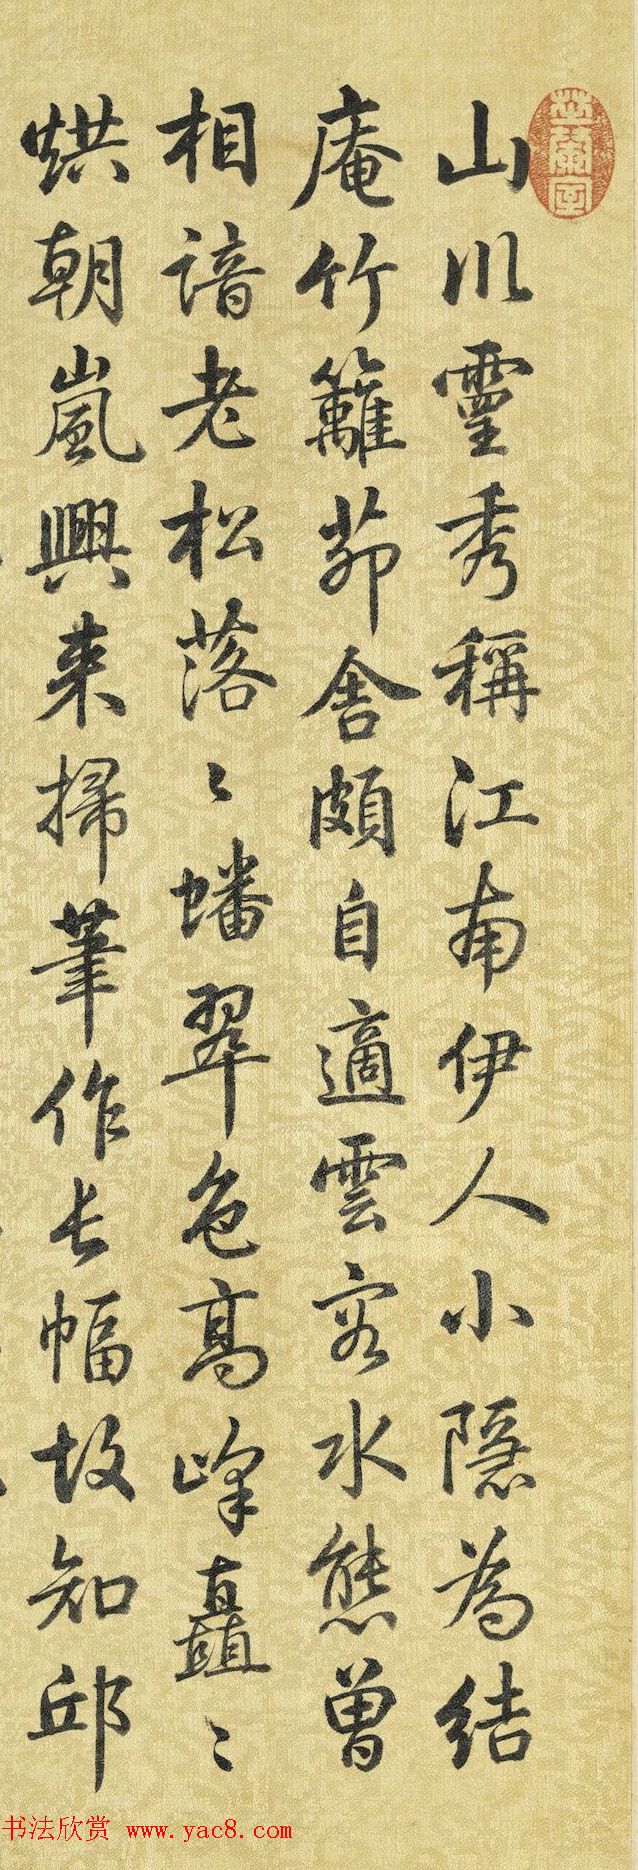 山川靈秀稱江南伊人小隱為結
庵竹籬茆舍頗自適雲容水態曾
相諳老松落〻蟠翠色高峰矗〻
烘朝嵐興来掃筆作長幅故知邱
书法欣赏 www.yac8.com